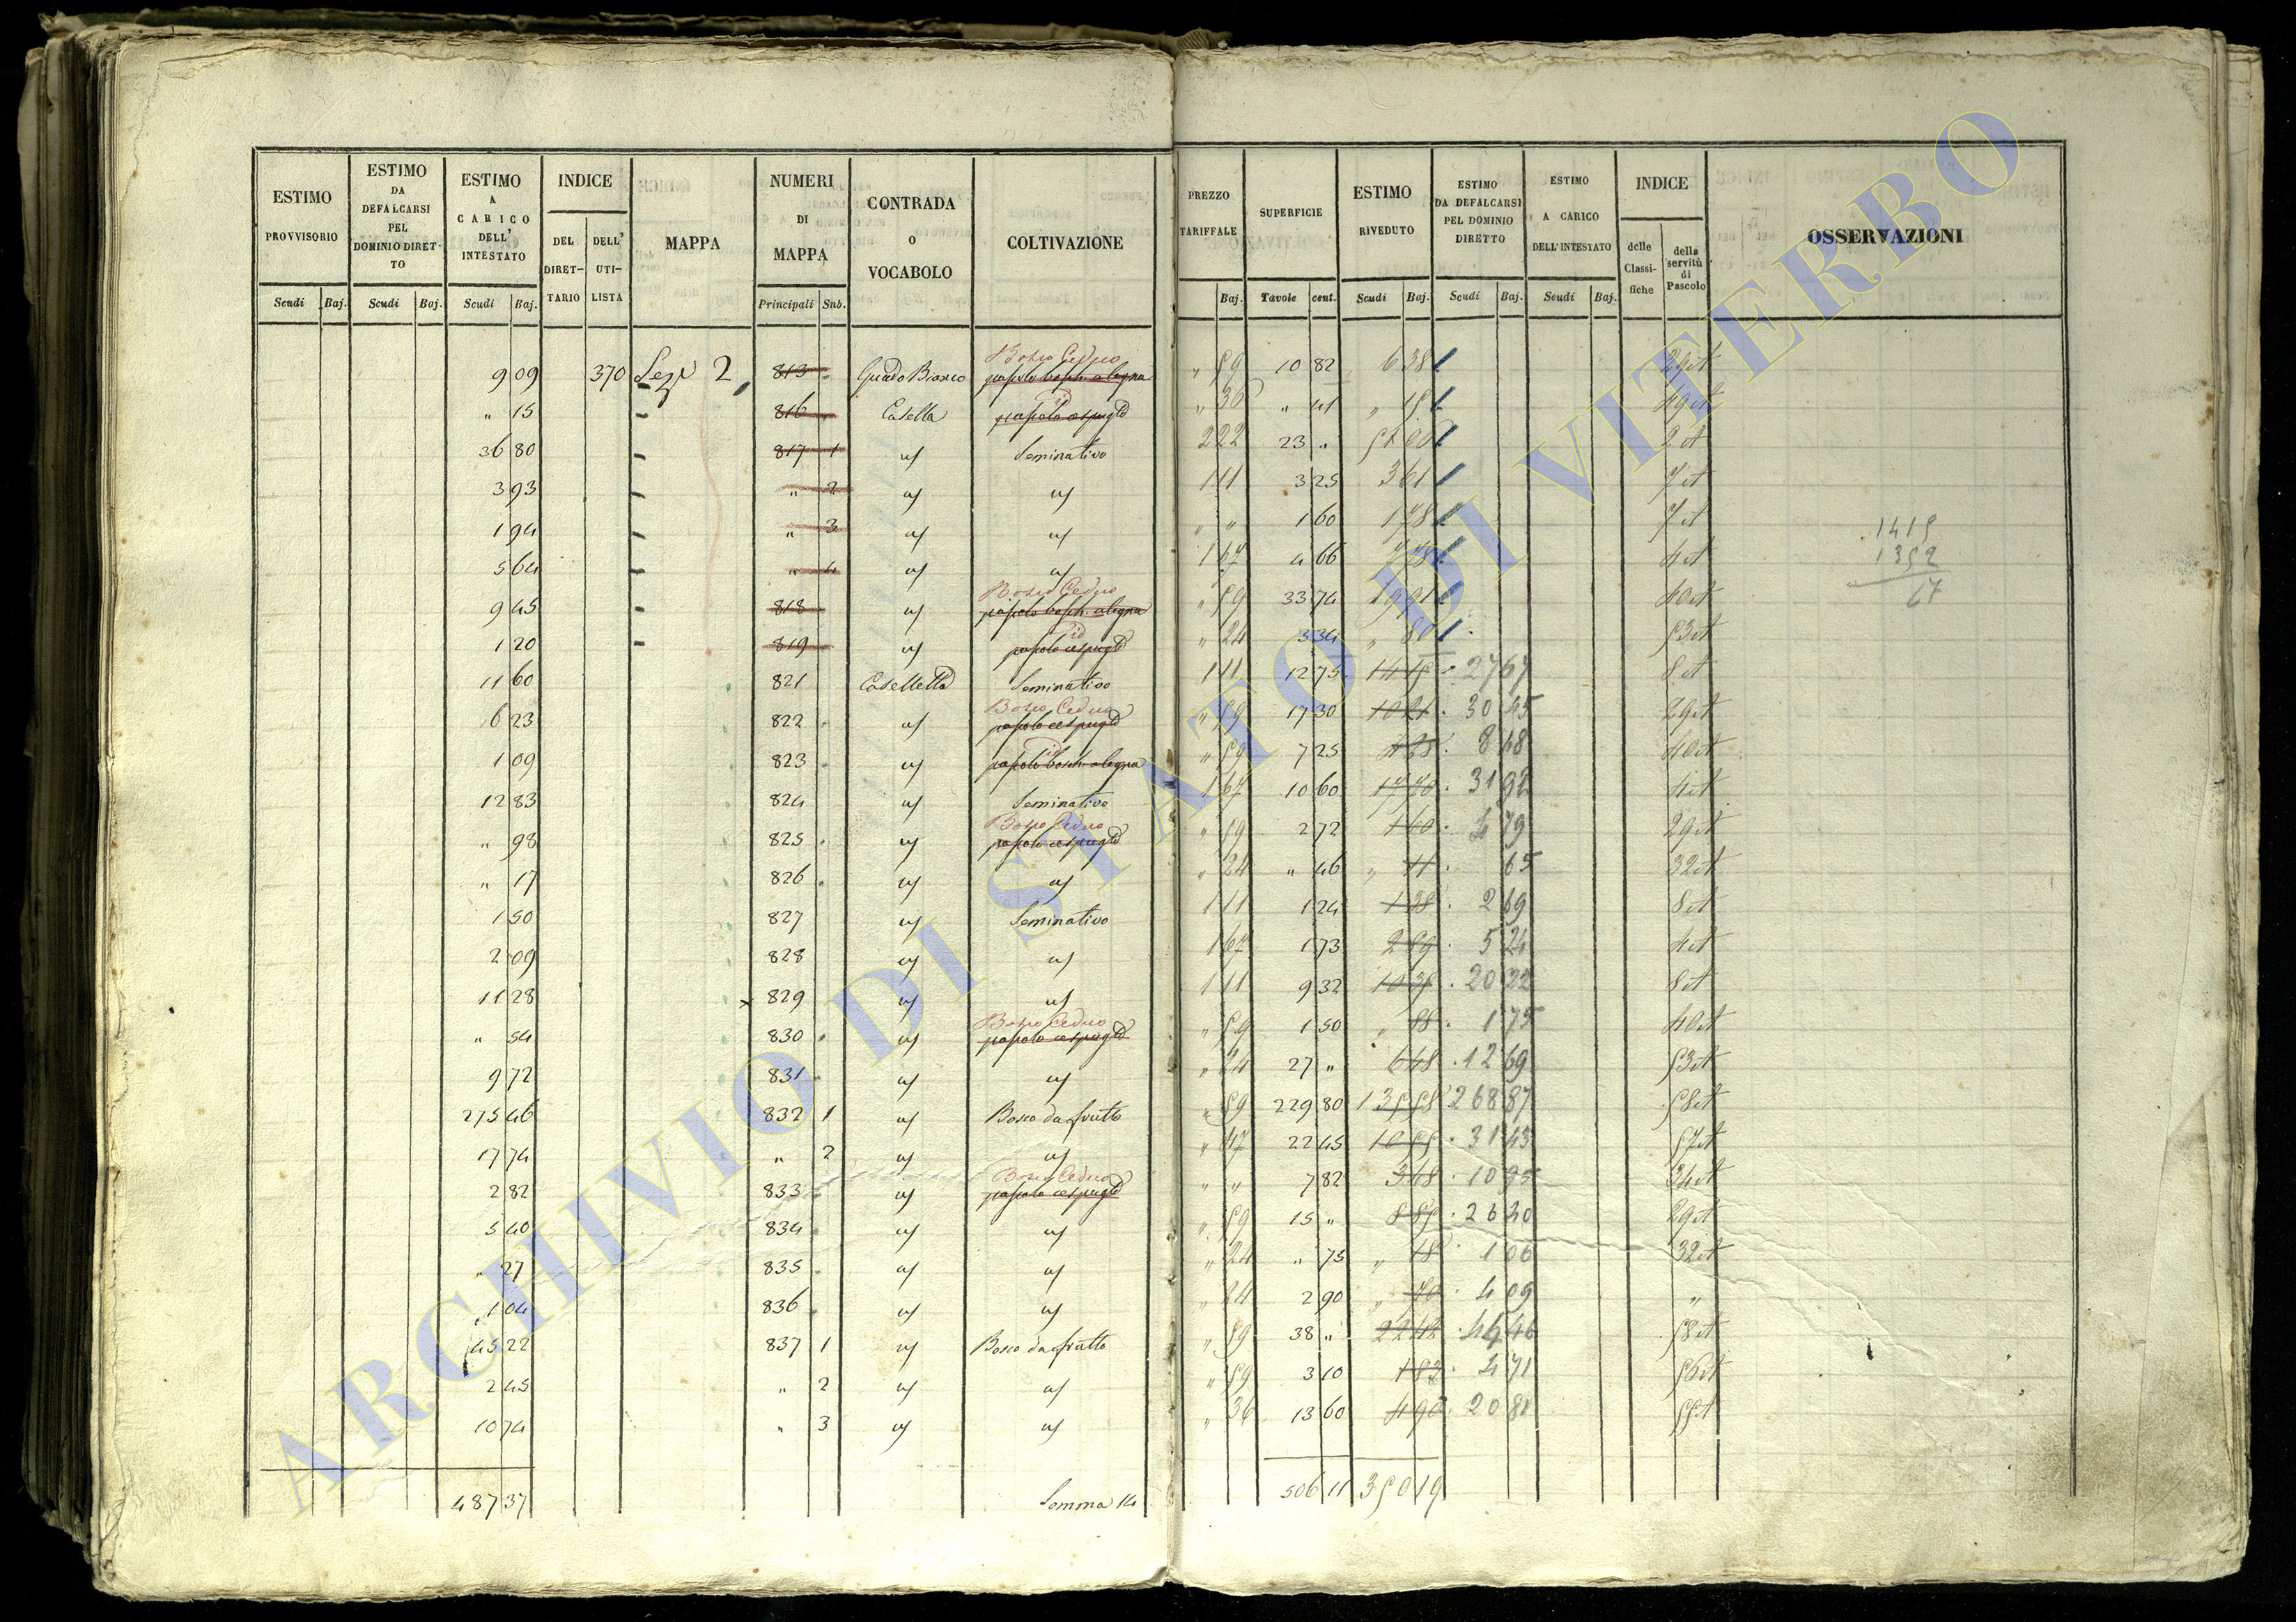 ESTIMO PROVVISORIO Scudi Baj.
ESTIMO DA DEFALCARSI PEL DOMINIO DIRET-TO Scudi Baj.
ESTIMO A CARICO DELL' INTESTATO Scudi Baj.
INDICE DEL DIRET-TARIO DELL' UTI-LISTA
MAPPA
NUMERI DI MAPPA Principali Sub.
CONTRADA O VOCABOLO
COLTIVAZIONE
PREZZO TARIFFALE Baj.
SUPERFICIE Tavole cent.
ESTIMO RIVEDUTO Scudi Baj.
ESTIMO DA DEFALCARSI PEL DOMINIO DIRETTO Scudi Baj.
ESTIMO A CARICO DELL'INTESTATO Scudi Baj.
INDICE delle Classi-fiche della servitù di Pascolo
OSSERVAZIONI
Bosco Ceduo
9 09 370 Sez 2, 813 Guado Bianco pascolo bosch. a legna " 59 10 82 6 38 29 et
id
" 15 816 Casella pascolo cespugl " 36 " 41 " 15 49 et
36 80 817 1 Seminativo 2 22 23 " 51 06 2 et
3 93 " 2 1 11 3 25 3 61 7 et
1 94 " 3 " " 1 60 1 78 7 et
5 64 " 4 1 67 4 66 7 78 4 et
Bosco Ceduo
9 45 818 pascolo bosch. a legna " 59 33 74 19 91 40 et
id
1 20 819 pascolo cespugl " 24 3 34 " 80 53 et
11 60 821 Caselletta Seminativo 1 11 12 75 14 15 27 67 8 et
Bosco Ceduo
6 23 822 pascolo cespugl " 59 17 30 10 21 30 45 29 et
id
1 09 823 pascolo bosch. a legna " 59 7 25 4 28 8 48 40 et
12 83 824 Seminativo 1 67 10 60 17 70 31 92 4 et
Bosco Ceduo
" 98 825 pascolo cespugl " 59 2 72 1 60 4 79 29 et
" 17 826 " 24 " 46 " 11 65 32 et
1 50 827 Seminativo 1 11 1 24 1 38 2 69 8 et
2 09 828 1 67 1 73 2 89 5 24 4 et
11 28 829 1 11 9 32 10 35 20 22 8 et
Bosco Ceduo
" 54 830 pascolo cespugl " 59 1 50 " 88 1 75 40 et
9 72 831 " 24 27 " 6 48 12 69 53 et
275 46 832 1 Bosco da frutto " 59 229 80 135 58 268 87 58 et
17 74 " 2 " 47 22 45 10 55 31 43 57 et
Bosco Ceduo
2 82 833 pascolo cespugl " " 7 82 3 68 10 95 34 et
5 40 834 " 59 15 " 8 85 26 40 29 et
" 27 835 " 24 " 75 " 18 1 06 32 et
1 04 836 " 24 2 90 " 70 4 09 "
45 22 837 1 Bosco da frutto " 59 38 " 22 42 44 46 58 et
2 45 " 2 " 59 3 10 1 83 4 71 56 et
10 74 " 3 " 36 13 60 4 90 20 81 55 et
487 37 Somma 506 11 350 19
1415
1352
ARCHIVIO DI STATO DI VITERBO